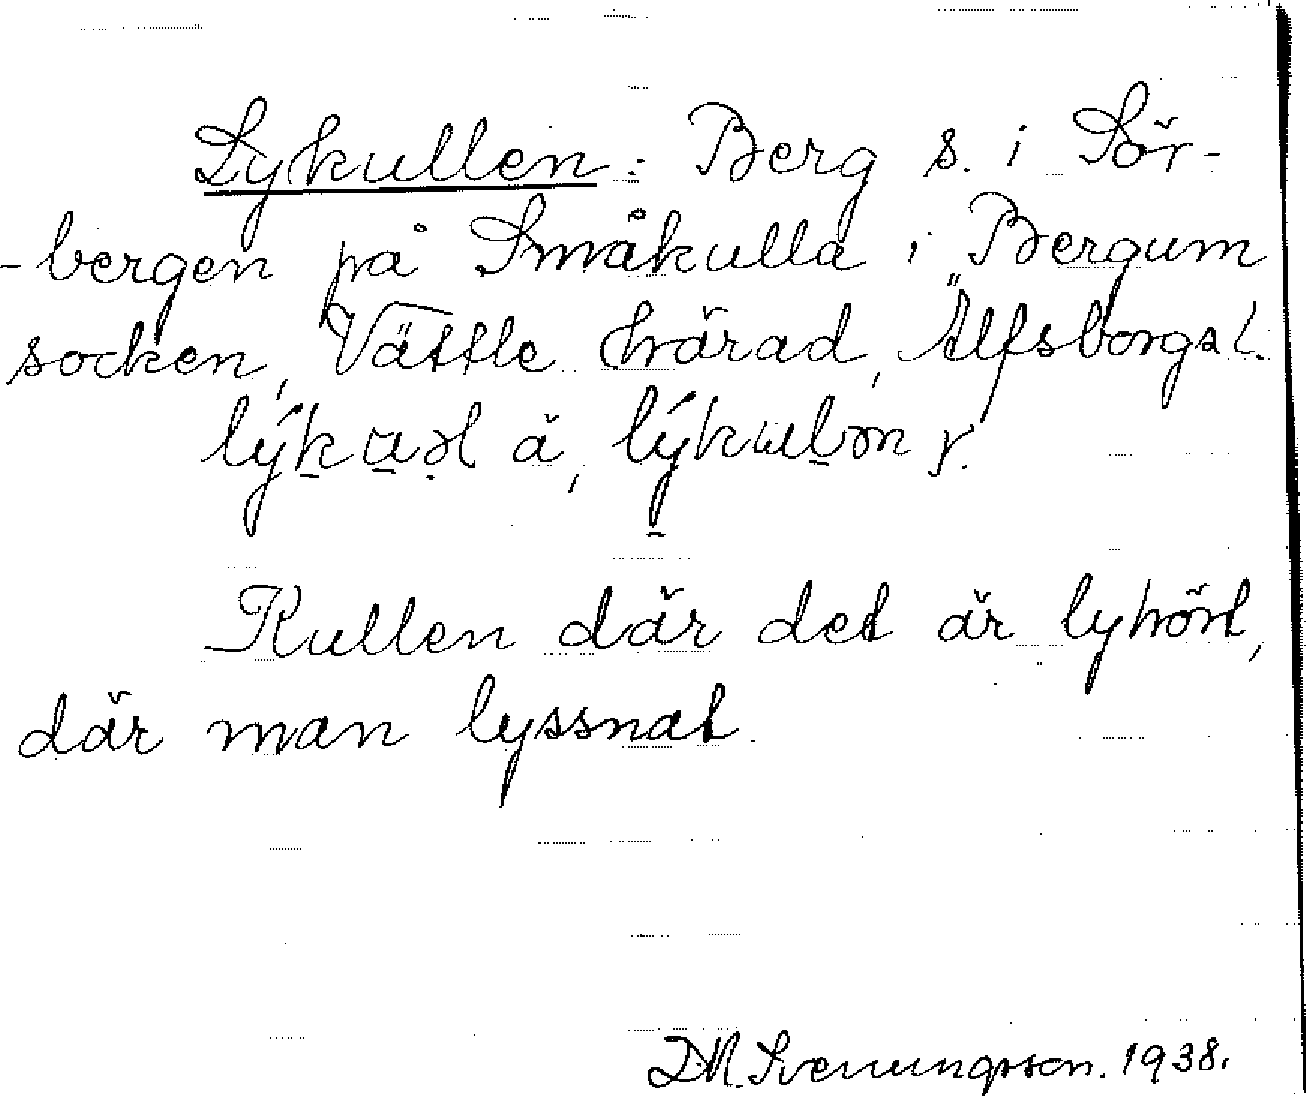 Lykullen: Berg s. i Sör-
-bergen på Småkulla i Bergum
socken, Vättle härad, Älfsborgs l.
Kullen där det är lyhört,
där man lyssnat.
D.M. Svenungsson. 1938.